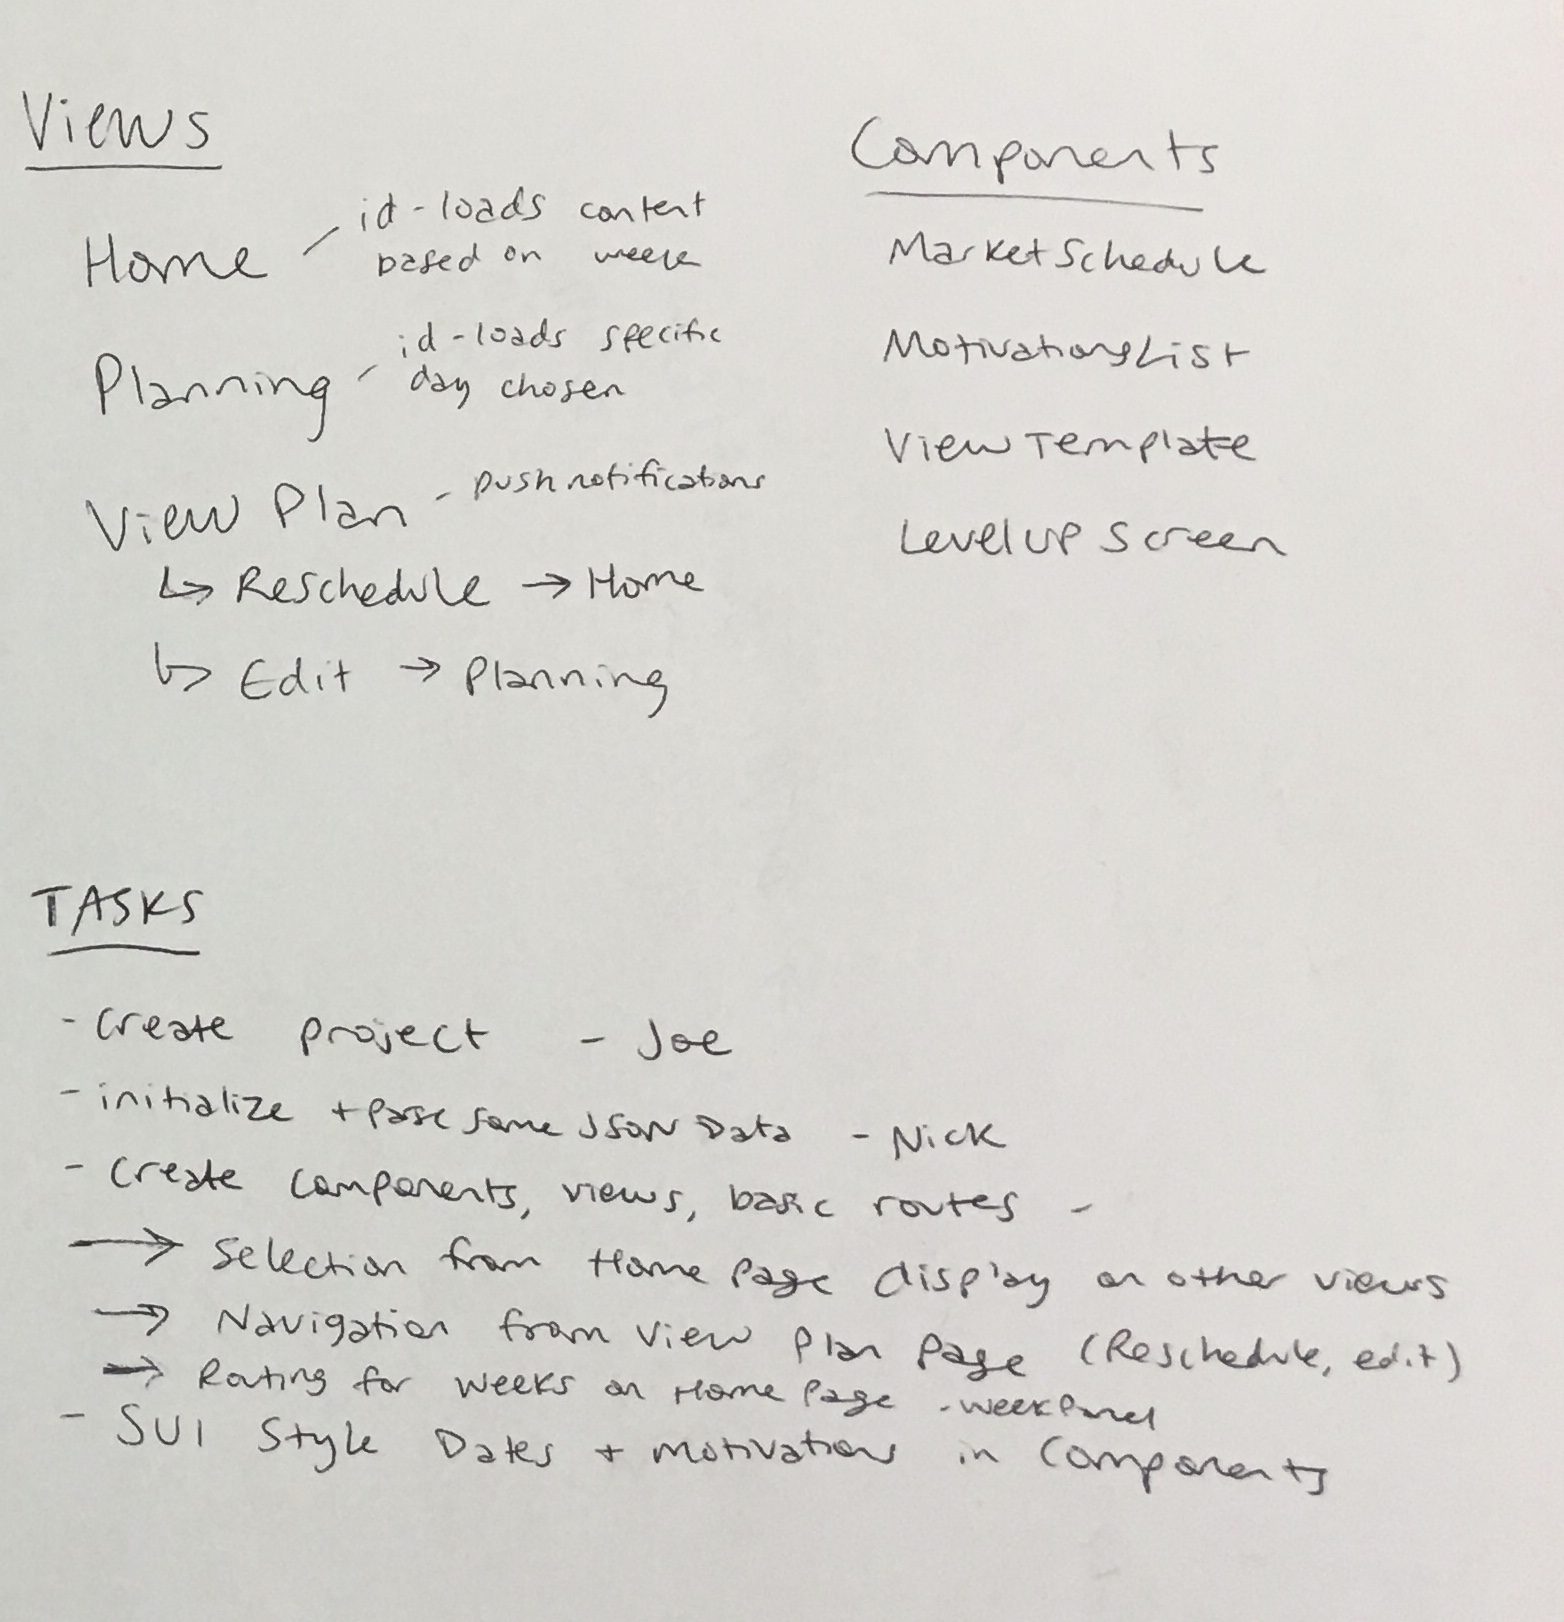 Views
Home - id-loads content
based on week
Planning - id-loads specific
day chosen
View Plan - push notifications
↳ Reschedule → Home
↳ Edit → Planning
Components
MarketSchedule
MotivationsList
ViewTemplate
LevelUpScreen
TASKS
- Create project - Joe
- initialize + some JSON Data - Nick
- Create components, views, basic routes -
→ Selection from Home Page display on other views
→ Navigation from View Plan Page (Reschedule, edit)
→ Routing for weeks on Home Page - weekPanel
- SUI Style Dates + motivations in Components